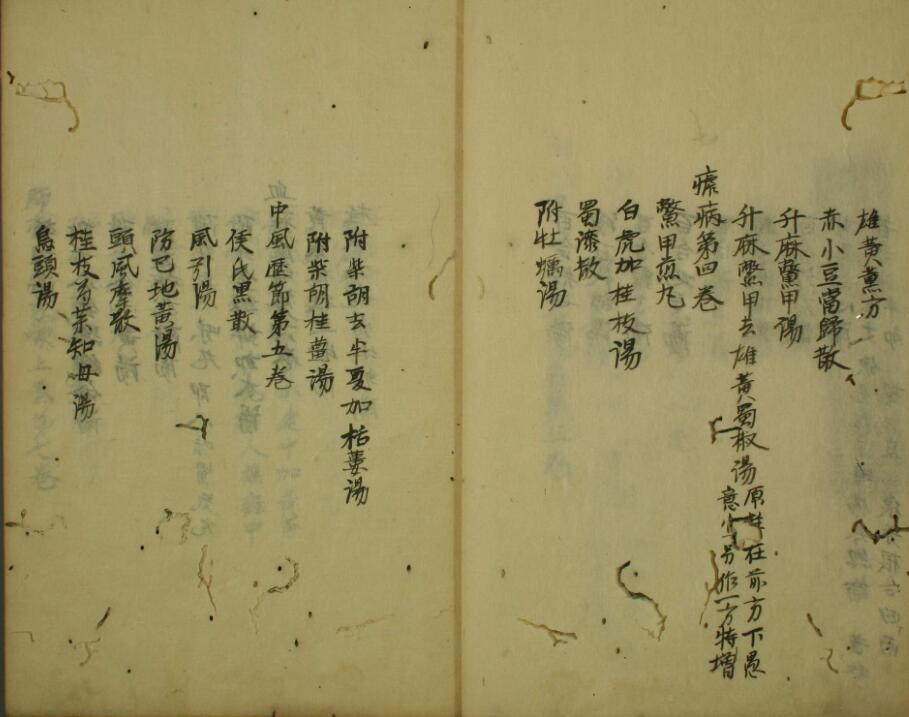 雄黃薰方
赤小豆當歸散
升麻鱉甲湯
升麻鱉甲去雄黃蜀椒湯原註在前方下愚
意當另作一方特增
瘧病第四卷
鱉甲煎丸
白虎加桂枝湯
蜀漆散
附牡蠣湯
附柴胡去半夏加栝蔞湯
附柴胡桂薑湯
中風歷節第五卷
侯氏黑散
風引湯
防己地黃湯
頭風摩散
桂枝芍藥知母湯
烏頭湯